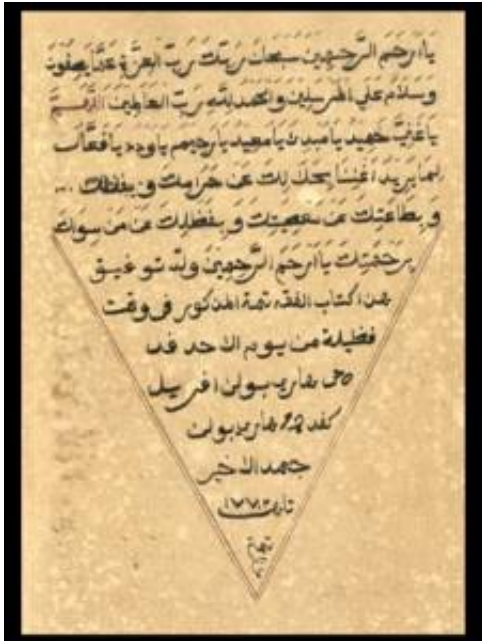 يا ارحم الرحمين سبحان ربك رب العزة عما يصفون
وسلام علي المرسلين والحمد لله رب العالمين اللهم
يا غني حميد يا مبدئ يا معيد يا رحيم يا ودود يا فعال
لما يريد اغننا بحلالك عن حرامك و بفضلك
و بطاعتك عن معصيتك و بفضلك عن من سواك
برحمتك يا ارحم الرحمين
كتاب الفقه تمة المذكور في وقت
فظيلة من يوم الاحد
هاريبولن افريل
هاريبولن
جمد الاخير
١٧٧٢
تمة